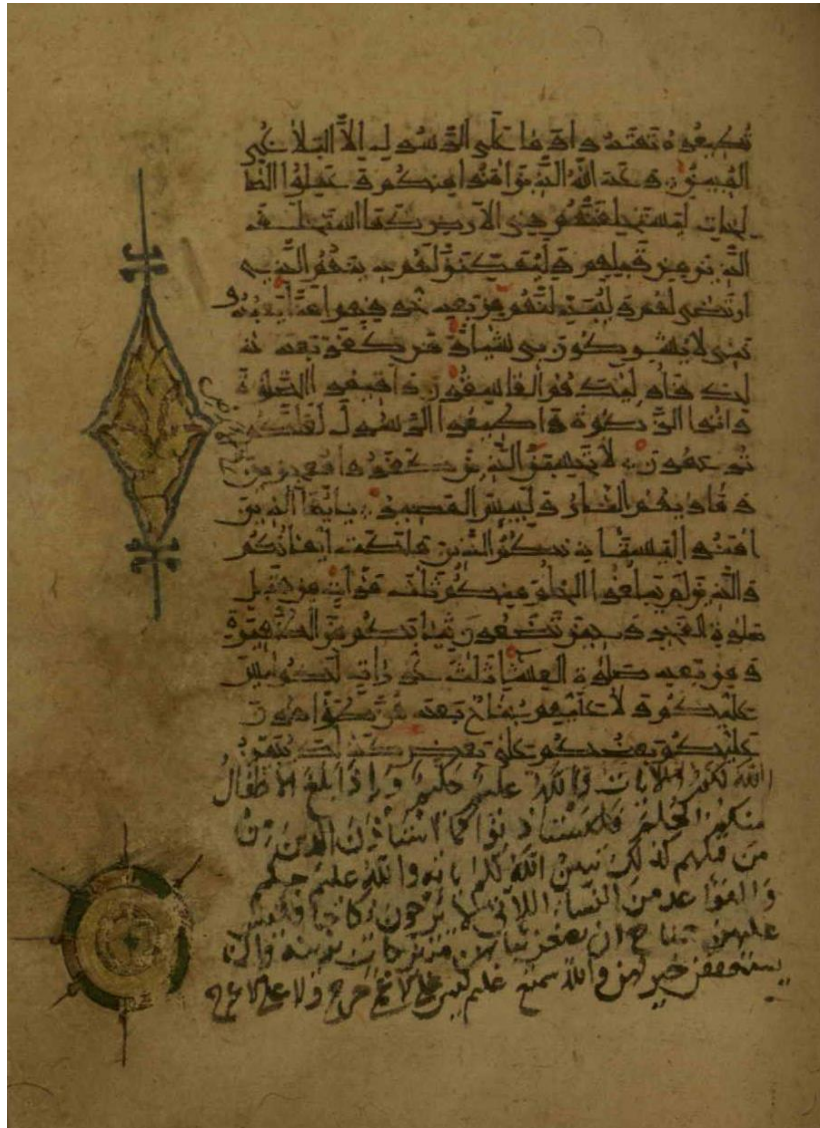 تطيعوه تهتدوا وما على الرسول إلا البلاغ
المبين وعد الله الذين آمنوا منكم وعملوا الصا
لحات ليستخلفنهم في الأرض كما استخلف
الذين من قبلهم وليمكنن لهم دينهم الذي
ارتضى لهم وليبدلنهم من بعد خوفهم أمنا يعبدو
نني لا يشركون بي شيئا ومن كفر بعد ذ
لك فأولئك هم الفاسقون وأقيموا الصلوة
وآتوا الزكوة وأطيعوا الرسول لعلكم
ترحمون لا تحسبن الذين كفروا معجزين
ومأواهم النار ولبئس المصير يأيها الذين
آمنوا ليستأذنكم الذين ملكت أيمانكم
والذين لم يبلغوا الحلم منكم ثلث مرات من قبل
صلوة الفجر وحين تضعون ثيابكم من الظهيرة
ومن بعد صلوة العشاء ثلث عورات لكم ليس
عليكم ولا عليهم جناح بعدهن طوافون
عليكم بعضكم على بعض كذلك يبين
الله لكم الآيات والله عليم حكيم وإذا بلغ الأطفال
منكم الحلم فليستأذنوا كما استأذن الذين
من قبلهم كذلك يبين الله لكم آياته والله عليم حكيم
والقواعد من النساء اللاتي لا يرجون نكاحا فليس
عليهن جناح أن يضعن ثيابهن غير متبرجات بزينة وأن
يستعففن خير لهن والله سميع عليم ليس على الأعمى حرج ولا على الأعرج